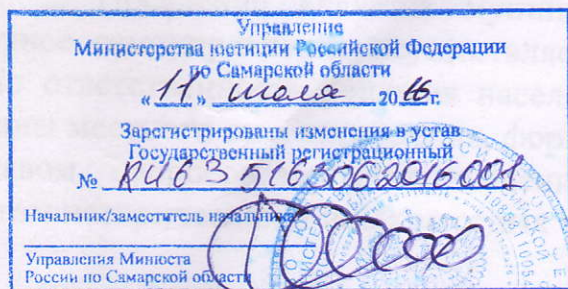 Управление
Министерства юстиции Российской Федерации
по Самарской области
« 11 » июля 20 16 г.
Зарегистрированы изменения в устав
Государственный регистрационный
№ RU635163062016001
Начальник/заместитель начальника
Управления Минюста
России по Самарской области